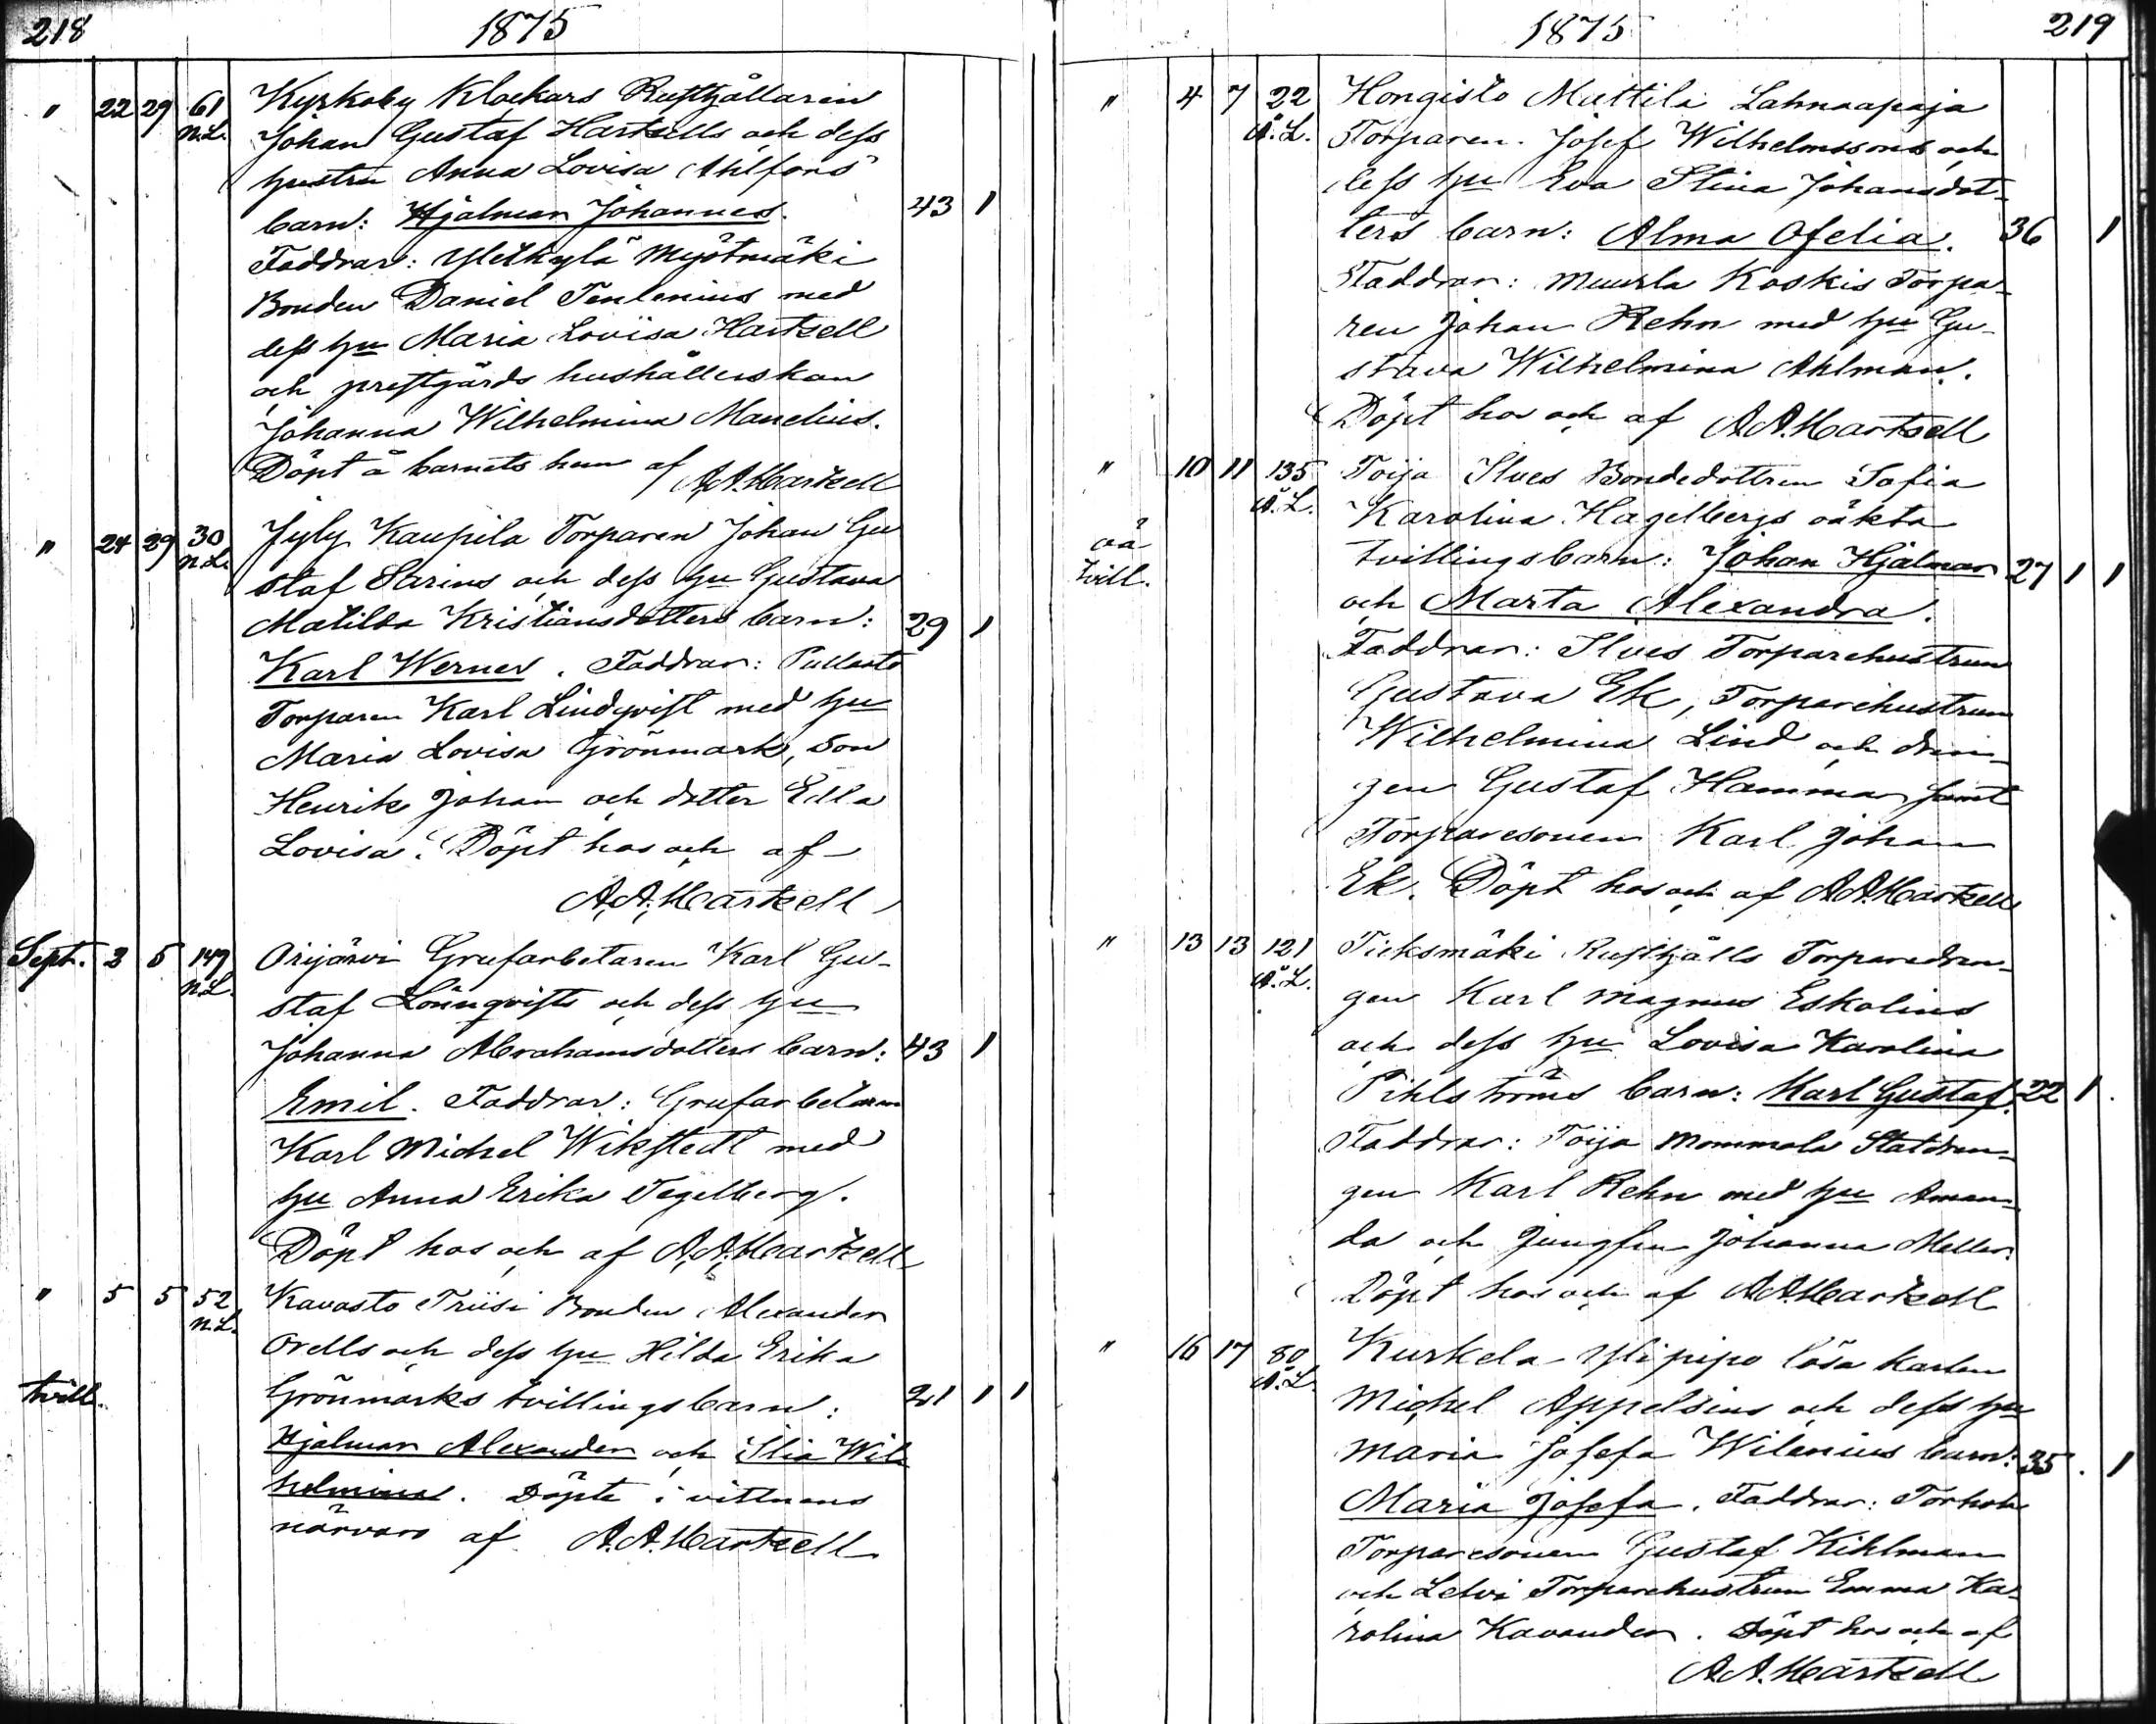 218 1875
" 22 29 61 Kyrkoby Klockars Rusthållaren
N.L. Johan Gustaf Hartzells och dess
hustru Anna Lovisa Ahlfors
barn: Hjalmar Johannes. 43 1
Faddrar: Ylikylä Myötmäki
Bonden Daniel Tenlenius med
dess hu Maria Lovisa Hartzell
och prestgårds hushållerskan
Johanna Wilhelmina Manelius.
Döpt å barnets hem af A.A.Hartzell
" 24 29 30 Jyly Kaupila Torparen Johan Gu
N.L. staf Sarins och dess hu Gustava
Matilda Kristiansdotters barn: 29 1
Karl Werner. Faddrar:
Torparen Karl Lindqvist med hu
Maria Lovisa Grönmark, Son
Henrik Johan och dotter Edla
Lovisa. Döpt hos och af
A.A.Hartzell
Sept. 2 5 149 Orijärvi Grufarbetaren Karl Gu-
N.L. staf Lönnqvists och dess hu
Johanna Abrahamsdotters barn: 43 1
Emil. Faddrar: Grufarbetaren
Karl Michel Wikstedt med
hu Anna Erika Tegelberg.
Döpt hos och af A.A.Hartzell
" 5 5 52 Kavasto Triisi Bonden Alexander
N.L. Orells och dess hu Hilda Erika
tvill. Grönmarks tvillingsbarn: 21 1 1
Hjalmar Alexander och Ilia Wil
helmina. Döpte i vittnens
närvaro af A.A.Hartzell
1875 219
" 4 7 22 Hongisto Mattila Lahnaapaja
Ä.L. Torparen Josef Wilhelmssons och
dess hu Eva Stina Johansdot-
ters barn: Alma Ofelia. 36 1
Faddrar: Muurla Koskis Torpa-
ren Johan Rehn med hu Gu-
stava Wilhelmina Ahlman.
Döpt hos och af A.A.Hartzell
" 10 11 135 Toija Ilves Bondedottren Sofia
Ä.L. Karolina Hagelbergs oäkta
oä tvill. tvillingsbarn: Johan Hjalmar 27 1 1
och Marta Alexandra.
Faddrar: Ilves Torparehustrun
Gustava Ek, Torparehustrun
Wilhelmina Lind och drän-
gen Gustaf Hammar samt
Torparesonen Karl Johan
Ek. Döpt hos och af A.A.Hartzell
" 13 13 121 Tieksmäki Rusthålls Torparedrän-
Ä.L. gen Karl Magnus Eskolins
och dess hu Lovisa Karolina
Pihlströms barn: Karl Gustaf. 22 1
Faddrar: Toija Mommola Statdrän-
gen Karl Rehn med hu Aman-
da och Jungfru Johanna Meller.
Döpt hos och af A.A.Hartzell
" 16 17 80 Kurkela Ylipipo lösa karlen
Ä.L. Michel Appelsins och dess hu
Maria Josefa Wilenius barn: 35 1
Maria Josefa. Faddrar:
Torparesonen Gustaf Kihlman
och Torparehustrun Emma Ka-
rolina Kavander. Döpt hos och af
A.A.Hartzell